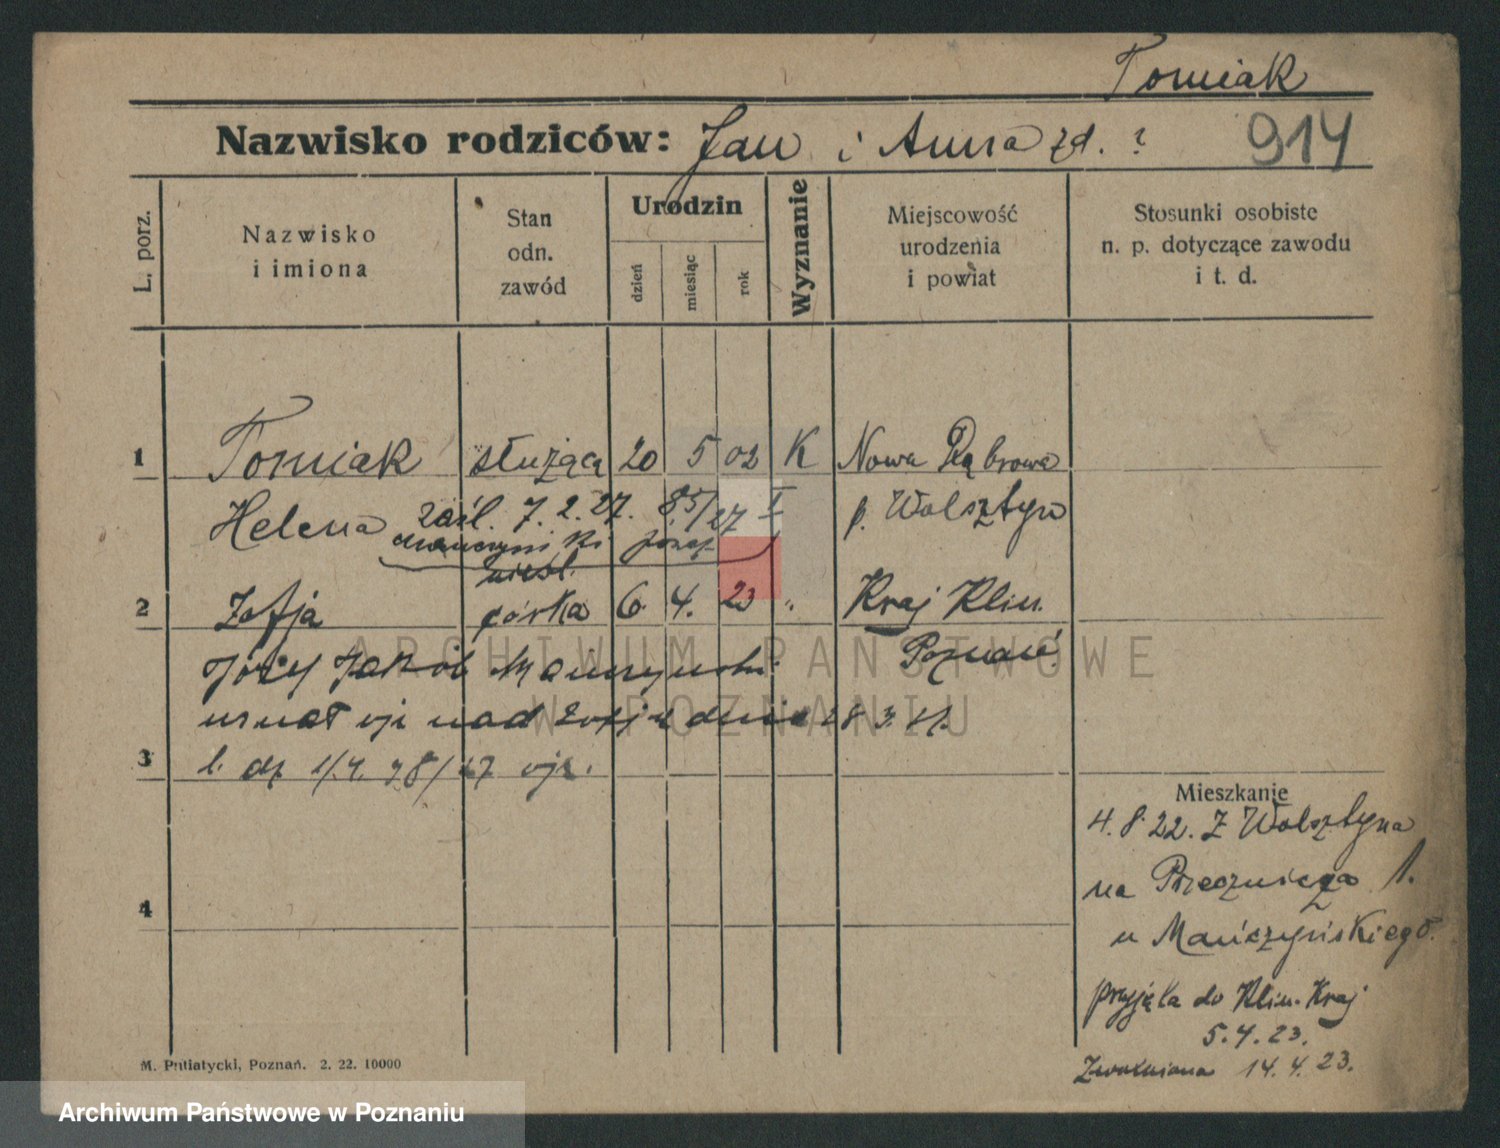 Tomiak
Nazwisko rodziców: Jan i Anna zd. ?
914
L. porz.
Nazwisko i imiona
Stan odn. zawód
Urodzin
dzień miesiąc rok
Wyznanie
Miejscowość urodzenia i powiat
Stosunki osobiste n. p. dotyczące zawodu i t. d.
1 Tomiak służąca 20 5 02 K Nowa Dąbrowa
Helena zaśl. 7. 2. 27. 85/27 I p. Wolsztyn
niesl.
2 Zofja córka 6. 4. 23 „ Kraj Klin.
Poznań
Józef Jakób Mańczyński
uznał oj. nad Zofją dnia 28 3.
3 l. dz 1/4. 98/27
4
Mieszkanie
4. 8. 22. Z Wolsztyna
na Przecznicza 1.
u Mańczyńskiego.
przyjęta do Klin. Kraj
5. 4. 23.
Zwolniona 14. 4. 23.
M. Putiatycki, Poznań. 2. 22. 10000
ARCHIWUM PAŃSTWOWE
W POZNANIU
Archiwum Państwowe w Poznaniu